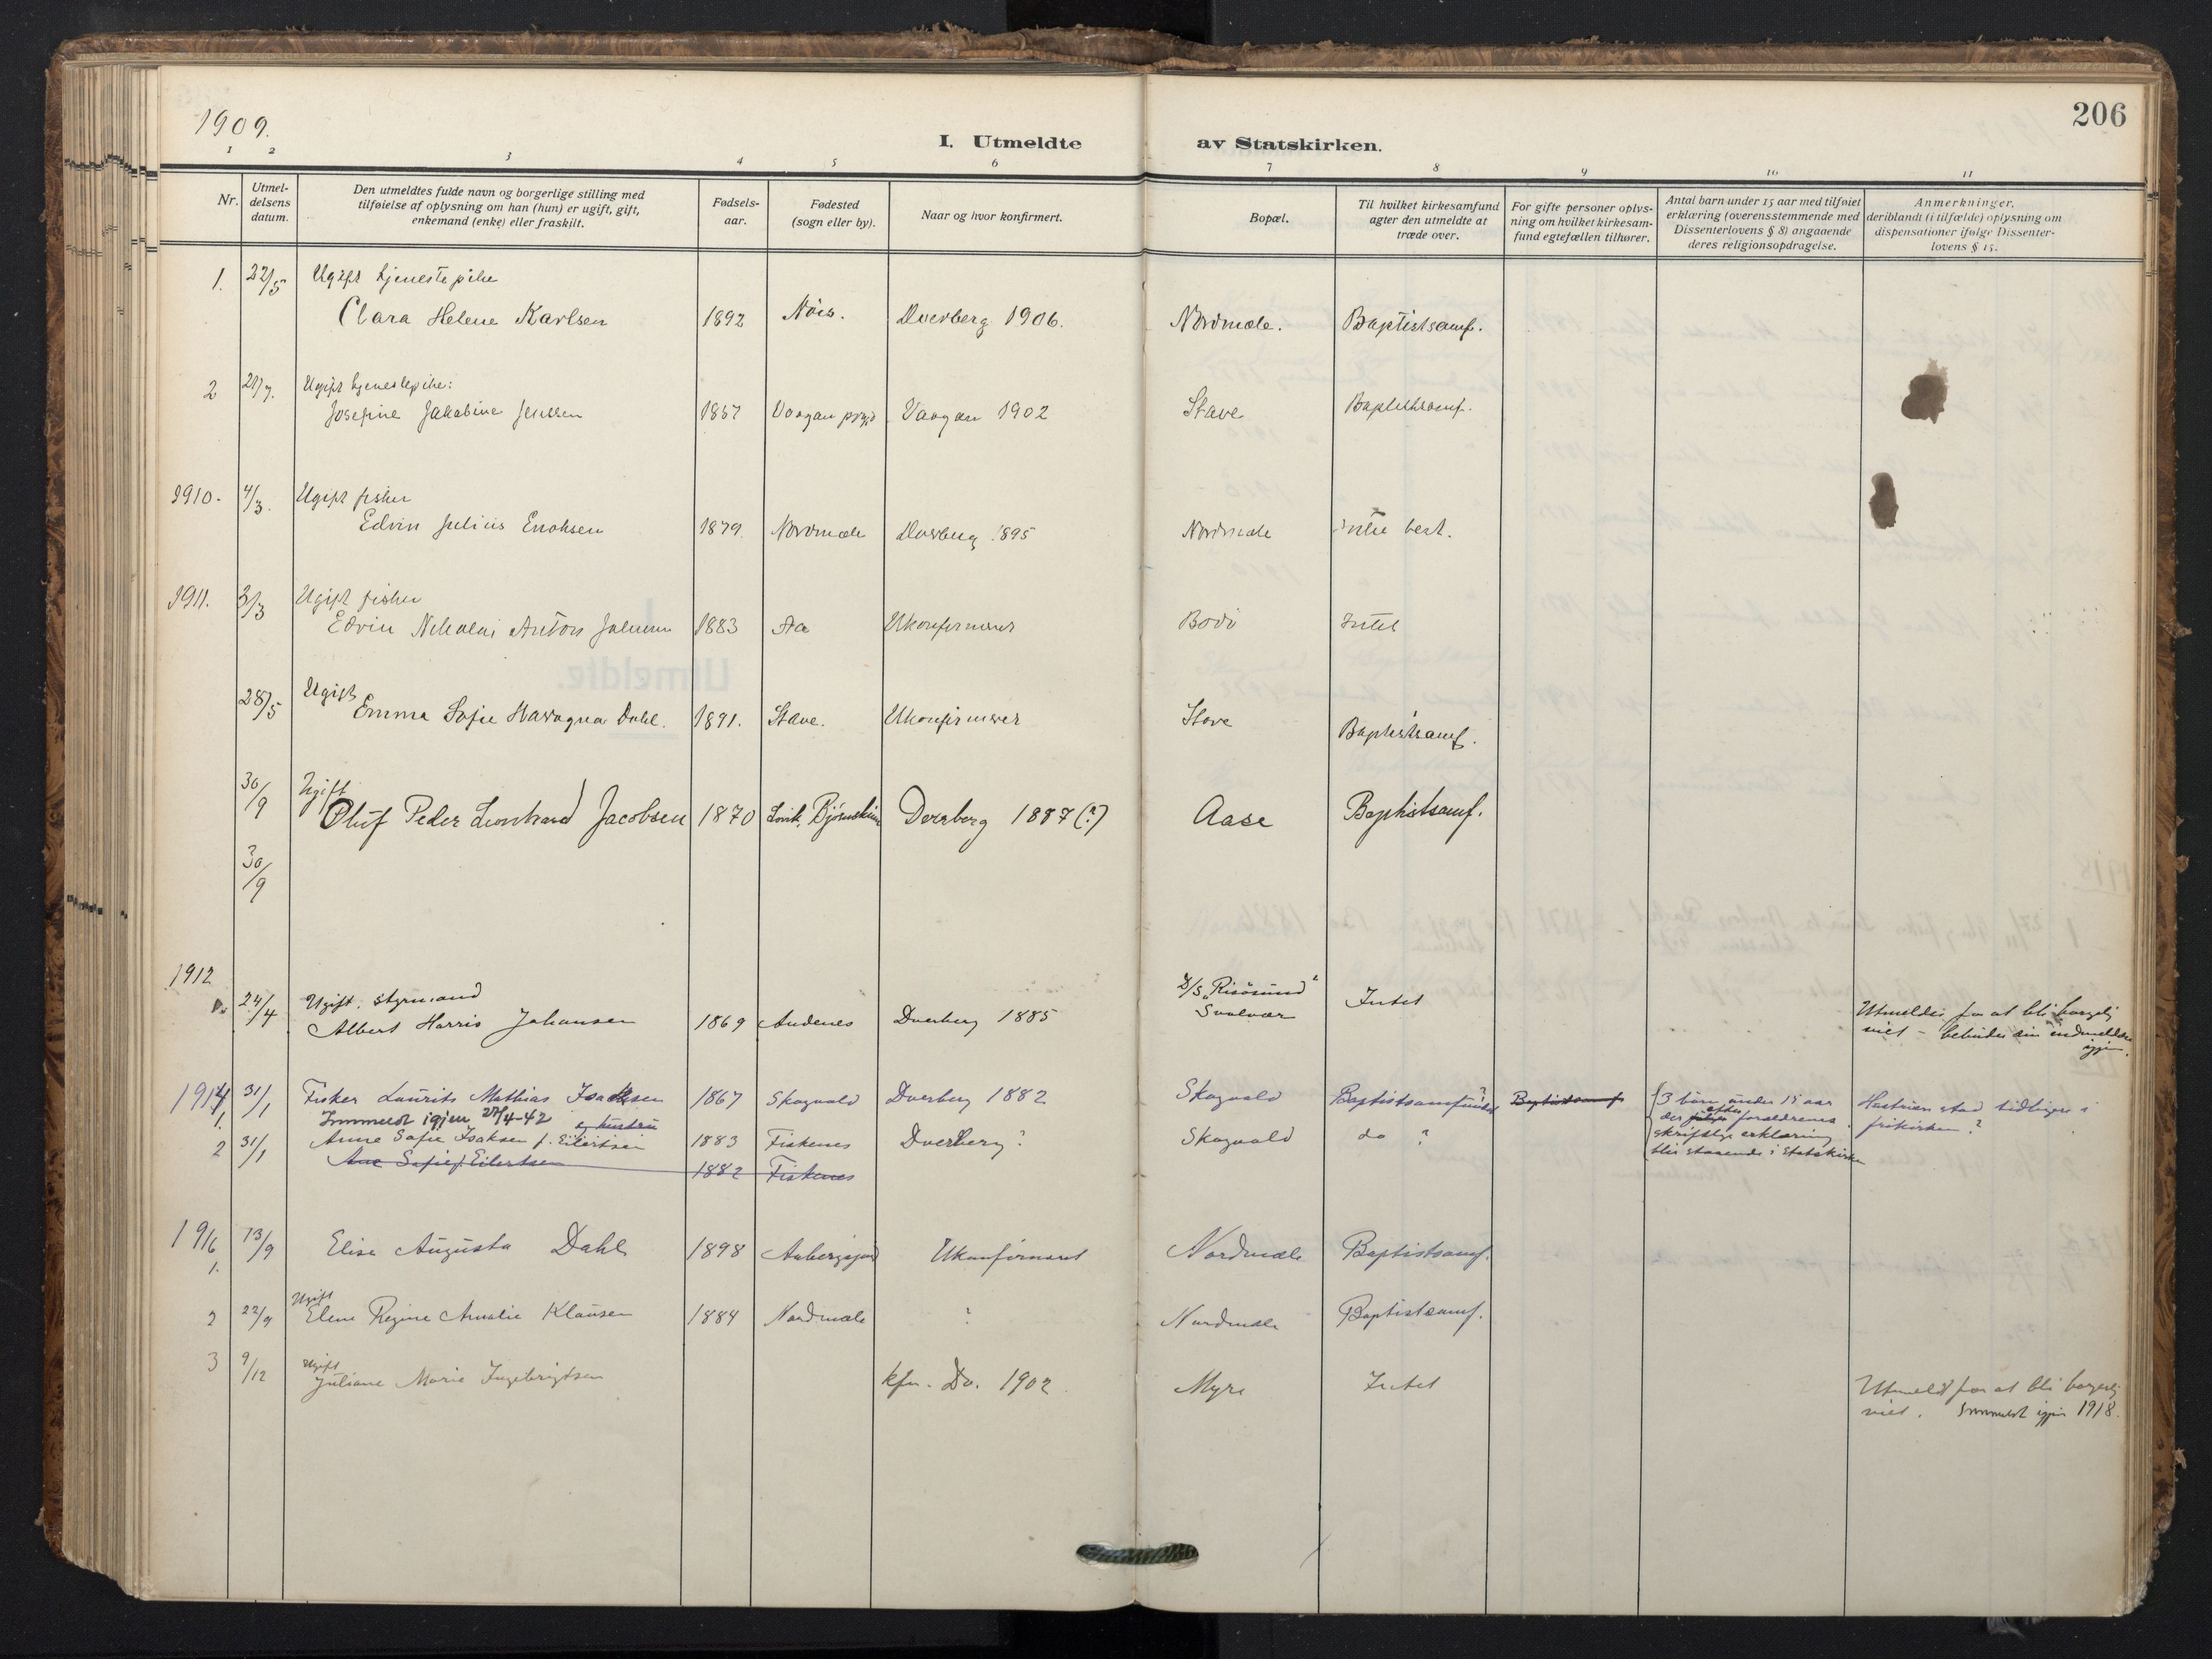 1909.
206
I. Utmeldte av Statskirken.
1 2 3 4 5 6 7 8 9 10 11
Nr.
Utmeldelsens datum.
Den utmeldtes fulde navn og borgerlige stilling med
tilføielse af oplysning om han (hun) er ugift, gift,
enkemand (enke) eller fraskilt.
Fødselsaar.
Fødested
(sogn eller by).
Naar og hvor konfirmert.
Bopæl.
Til hvilket kirkesamfund
agter den utmeldte at
træde over.
For gifte personer oplysning om hvilket kirkesamfund egtefællen tilhører.
Antal barn under 15 aar med tilføiet
erklæring (overensstemmende med
Dissenterlovens § 8) angaaende
deres religionsopdragelse.
Anmerkninger,
deriblandt (i tilfælde) oplysning om
dispensationer ifølge Dissenterlovens § 15.
1. 22/5 Ugift tjenestepike
Clara Helene Karlsen 1892 Nöis. Dverberg 1906. Nordmele. Baptistsamf.
2 21/7. Ugift tjenestepike:
Josefine Jakobine Jenssen Vaagan 1902 Stave Baptistsamf.
1910. 4/3. Ugift fisker
Edvin Julius Enoksen 1879. Nordmele Dverberg 1895 Nordmele
1911. 3/3 Ugift fisker
Edvin Nikolai Anton 1883 Aa Ukonfirmeret Bodö Intet
28/5 Ugift
Emma Sofie Dahl. 1891. Stave. Ukonfirmeret Stave Baptistsamf.
30/9 Ugift
Oluf Peder Leonhard Jacobsen 1870 Dverberg 1887 (?) Aase Baptistsamf.
30/9
1912
24/4 Ugift. styrmand D/S "Risösund"
Albert Harris Johansen 1869 Andenes Dverberg 1885 Svolvær Intet Utmeldt for at bli borgerlig
viet - igjen.
1914 1. 31/1 Fisker Laurits Mathias Isaksen 1867 Skogvold Dverberg 1882 Skogvold Baptistsamfundet? Baptistsamf 3 börn under 15 aar Hustruen stod tidligere i
Innmeldt igjen 27/4-42 og hustru der efter forældrenes frikirken?
2 31/1 Anne Sofie Isaksen f. Eilertsen 1883 Fiskenes Dverberg? Skogvold do ? skriftlige erklæring
Ane Sofie f. Eilertsen 1882 Fiskenes blir staaende i Statskirken
1916 1. 13/9 Elise Augusta Dahl 1898 Ukonfirmeret Nordmele Baptistsamf.
2 22/9 Ugift Elene Regine Amalie Klausen 1884 Nordmele ? Nordmele Baptistsamf.
3 9/12 Ugift
Juliane Marie Ingebrigtsen kfm. Dv. 1902 Myre Intet Utmeldt for at bli borgerlig
viet. Innmeldt igjen 1918.